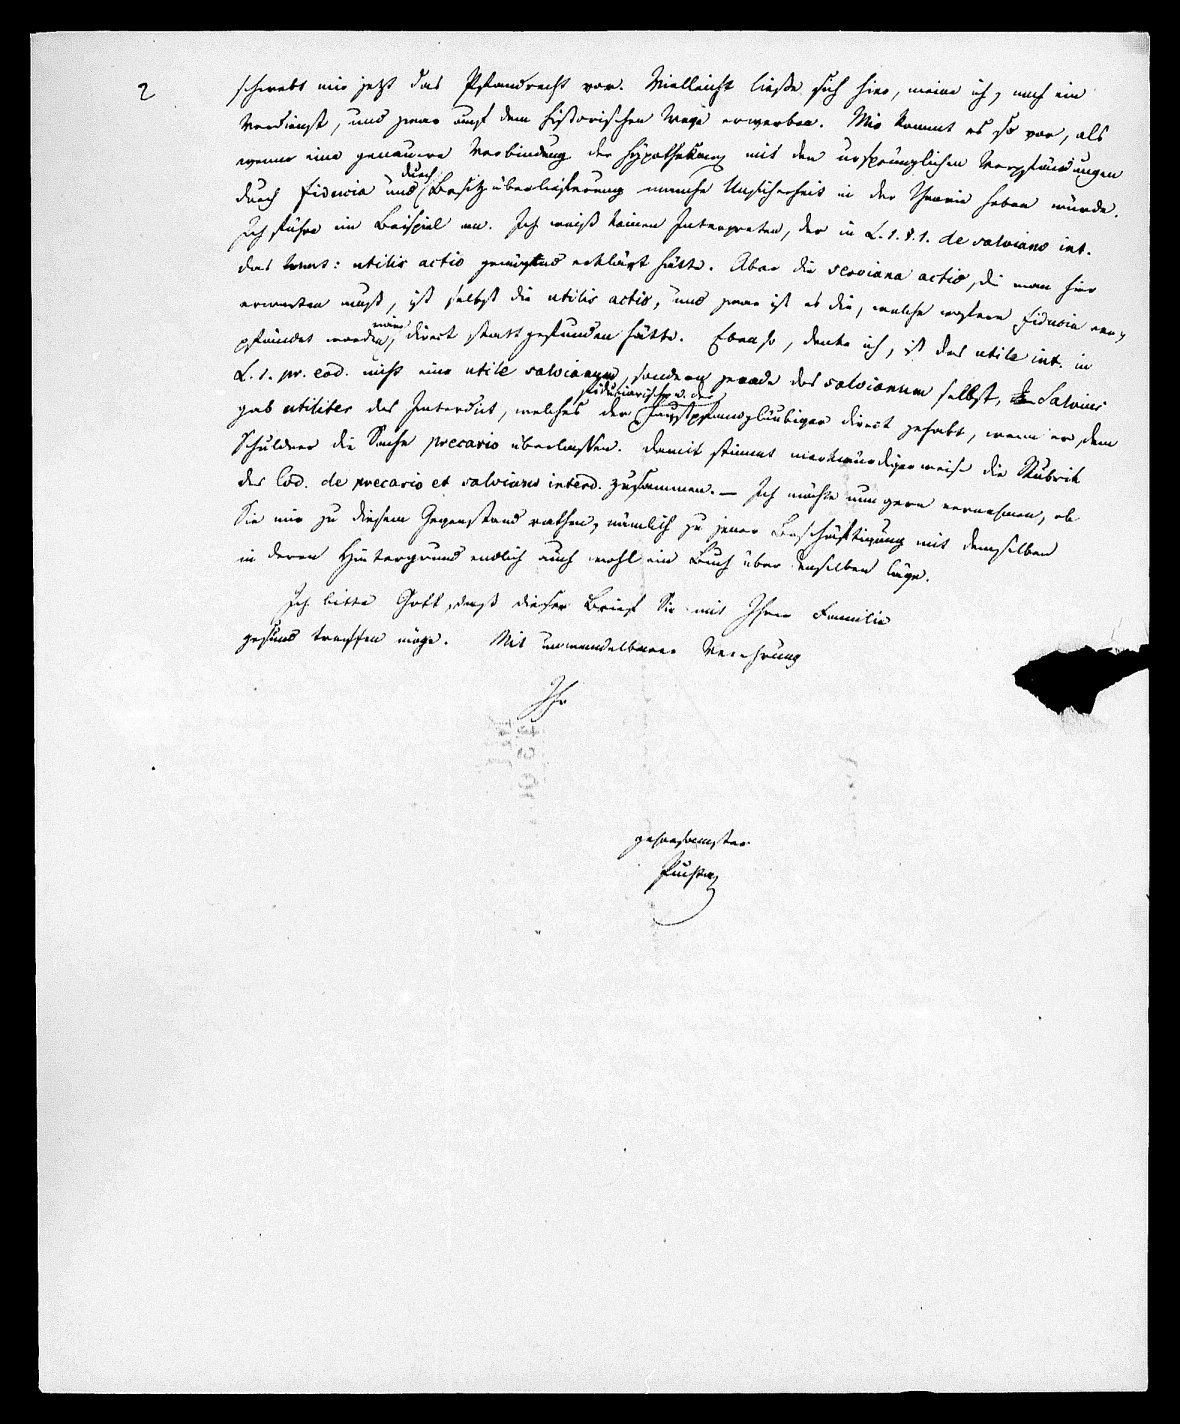 2
schwebt mir jetzt das Pfandrecht vor. Vielleicht ließe sich hier, meine ich, noch ein
Verdienst, und zwar auf dem historischen Wege erwerben. Mir kommt es so vor, als
wenn eine genauere Verbindung der Hypotheken mit den ursprünglichen Verpfändungen
durch fiducia und durch Besitzüberlieferung manche Unsicherheit in der Theorie heben würde.
Ich führe ein Beispiel an. Ich weiß keinen Interpreten, der in L. 1. §. 1. de salviano int.
das Wort: utilis actio genügend erklärt hätte. Aber die serviana actio, die man hier
erwarten muß, ist selbst die utilis actio, und zwar ist es die, welche wofern fiducia ver-
pfändet worden wäre, direct stattgefunden hätte. Ebenso, denke ich, ist das utile int. in
L. 1. pr. eod. nicht eine utile salvianum, sondern gerade das salvianum selbst, Salvius
gab utiliter das Interdict, welches der fiduciarische u. der Faustpfandgläubiger direct gehabt, wenn er dem
Schuldner die Sache precario überlassen. Damit stimmt merkwürdigerweise die Rubrik
des Cod. de precario et salviano interd. zusammen. — Ich möchte nun gern vernehmen, ob
Sie mir zu diesem Gegenstand rathen, nämlich zu jener Beschäftigung mit demselben
in deren Hintergrund endlich auch wohl ein Buch über denselben läge.
Ich bitte Gott, daß dieser Brief Sie mit Ihrer Familie
gesund treffen möge. Mit unwandelbarer Verehrung
Ihr
gehorsamster
Puchta